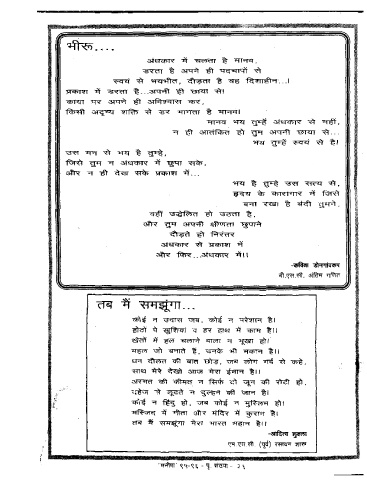 भीरू....
अंधकार में चलता है मानव,
डरता है अपने ही पदचापों से
स्वयं से भयभीत, दौड़ता है वह दिशाहीन...।
प्रकाश में डरता है...अपनी ही छाया से।
काया पर अपने ही अविश्वास कर,
किसी अदृष्य शक्ति से डर भागता है मानव।
मानव भय तुम्हें अंधकार से नहीं,
न ही आतंकित हो तुम अपनी छाया से...
भय तुम्हें स्वयं से है।
उस मन से भय है तुम्हे,
जिसे तुम न अंधकार में छुपा सके,
और न ही देख सके प्रकाश में...
भय है तुम्हे उस सत्य से,
हृदय के कारागार में जिसे
बना रखा है बंदी तुमने,
वहीं उद्वेलित हो उठता है,
और तुम अपनी क्षीणता छुपाने
दौड़ते हो निरंतर
अंधकार से प्रकाश में
और फिर...अंधकार में।।
बी.एस.सी. अंतिम गणित
तब मैं समझूंगा...
कोई न उदास जब, कोई न परेशान है।
होठों पे खुशियां व हर हाथ में काम है।।
खेतों में हल चलाने वाला न भूखा हो।
महल जो बनाते हैं, उनके भी मकान है।।
धन दौलत की बात छोड़, जब लोग गर्व से कहे,
साथ मेरे देखो आज मेरा ईमान है।।
अस्मत की कीमत न सिर्फ दो जून की रोटी हो,
दहेज से जूझते न दुल्हन की जान है।
कोई न हिंदू हो, जब कोई न मुस्लिम हो।
मस्जिद में गीता और मंदिर में कुरान है।
तब मैं समझूंगा मेरा भारत महान है।।
-आदित्य शुक्ला
एम.एस.सी. (पूर्व) रसायन शास्त्र